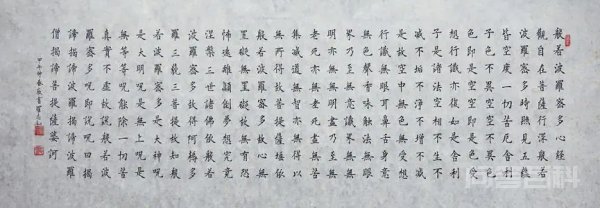 般若波羅蜜多心經
觀自在菩薩行深般若
波羅蜜多時照見五蘊
皆空度一切苦厄舍利
子色不異空空不異色
色即是空空即是色受
想行識亦復如是舍利
子是諸法空相不生不
滅不垢不淨不增不減
是故空中無色無受想
行識無眼耳鼻舌身意
無色聲香味觸法無眼
界乃至無意識界無無
明亦無無明盡乃至無
老死亦無老死盡無苦
集滅道無智亦無得以
無所得故菩提薩埵依
般若波羅蜜多故心無
罣礙無罣礙故無有恐
怖遠離顛倒夢想究竟
涅槃三世諸佛依般若
波羅蜜多故得阿耨多
羅三藐三菩提故知般
若波羅蜜多是大神咒
是大明咒是無上咒是
無等等咒能除一切苦
真實不虛故說般若波
羅蜜多咒即說咒曰揭
諦揭諦波羅揭諦波羅
僧揭諦菩提薩婆訶
甲午仲春